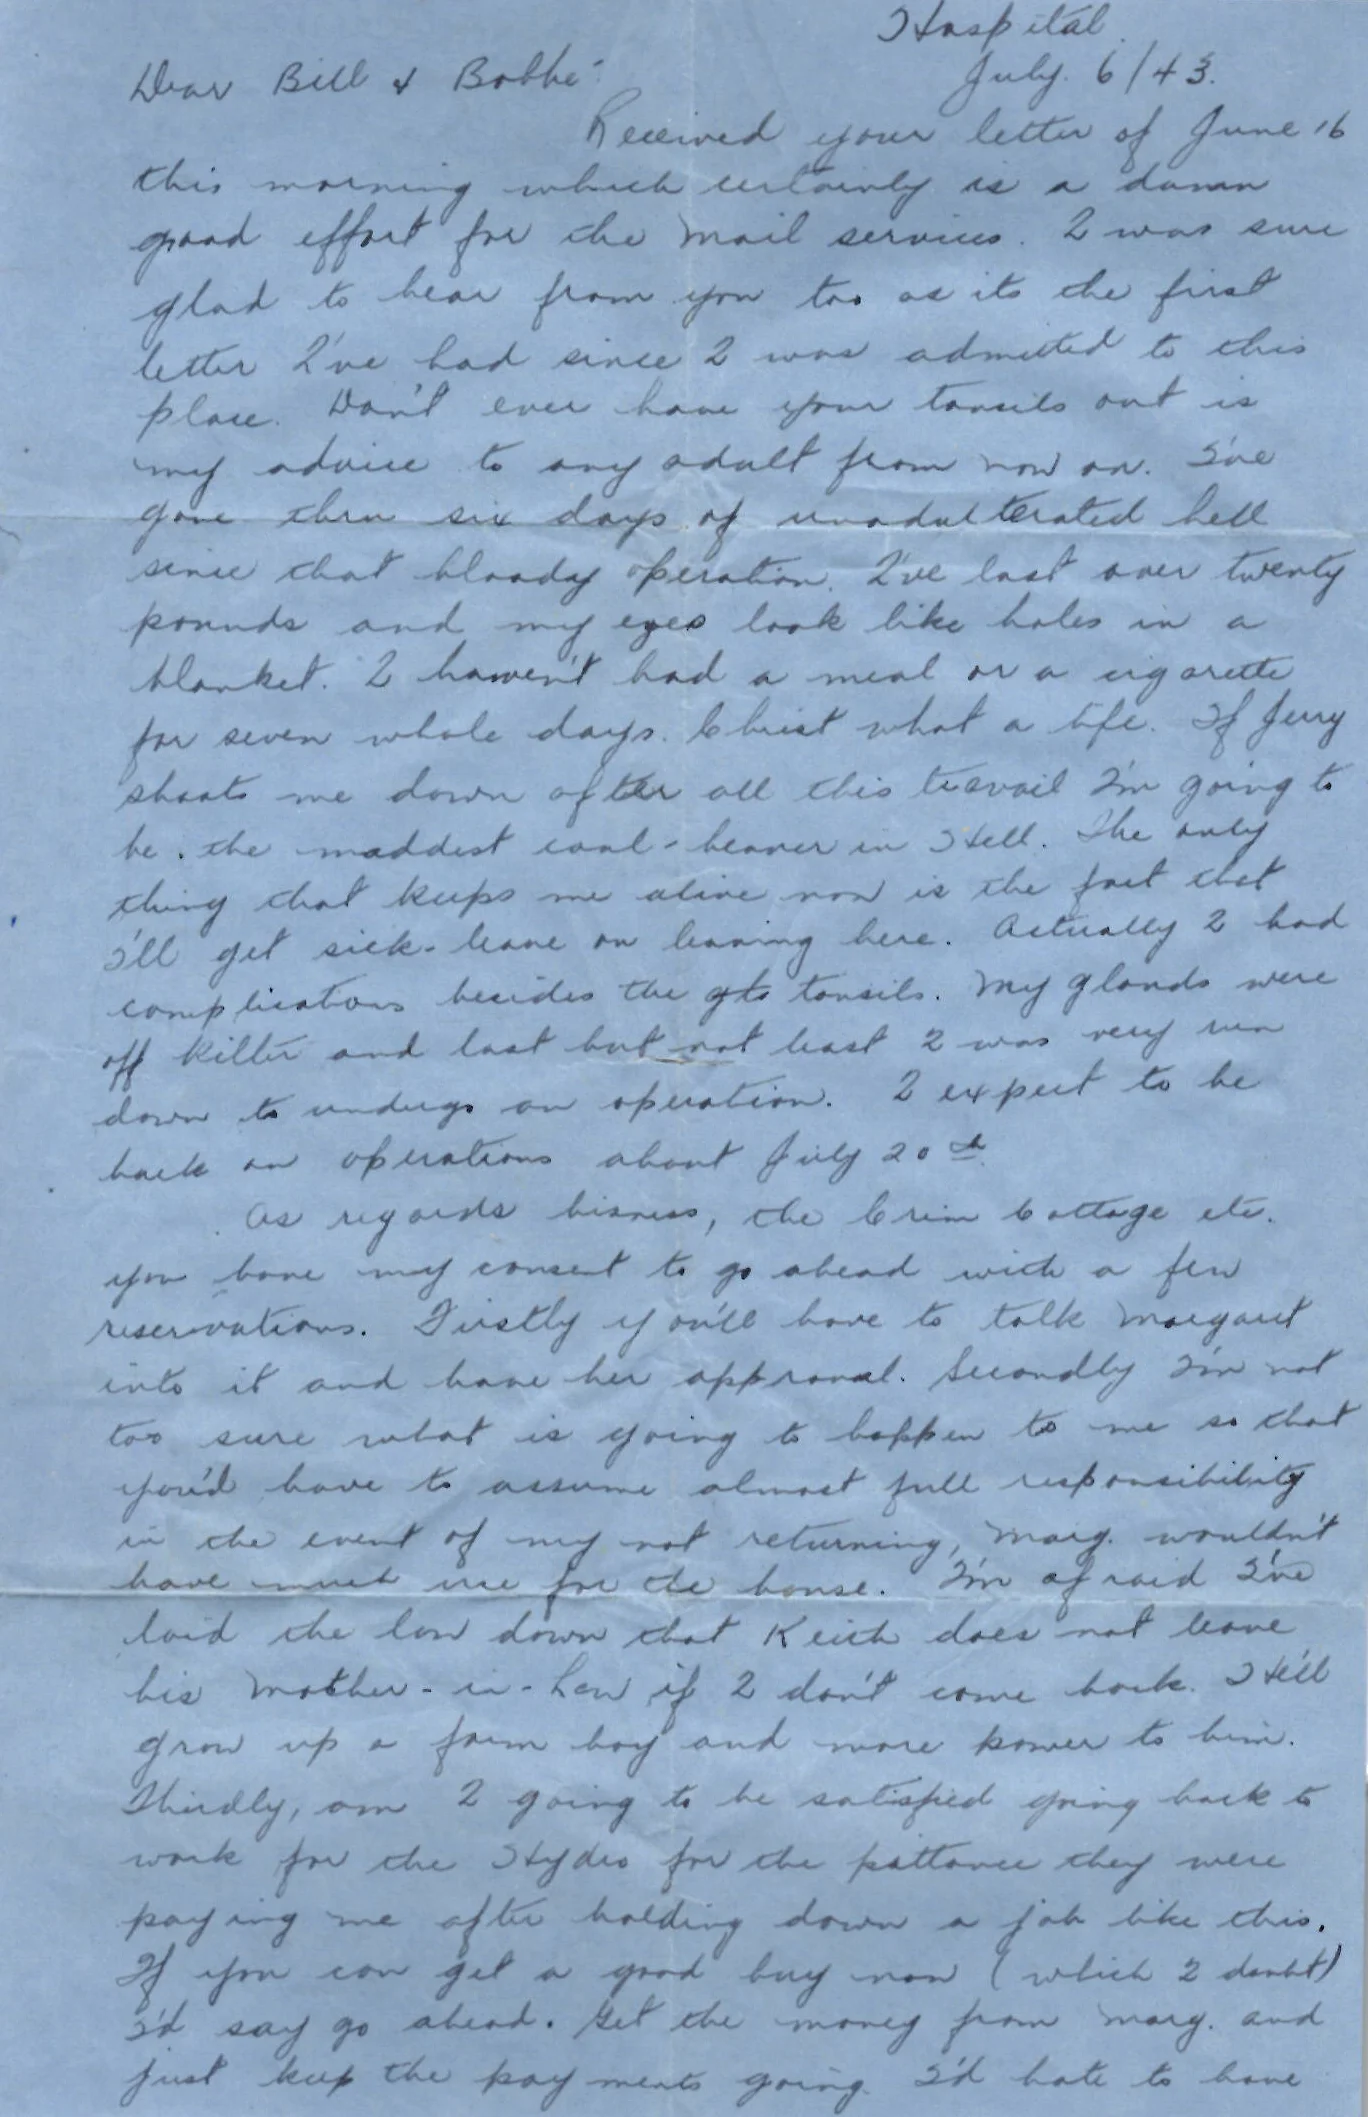 Hospital.
July. 6/43.
Dear Bill & Bobbe:
Received your letter of June 16
this morning which certainly is a damn
good effort for the mail services. I was sure
glad to hear from you too as its the first
letter I've had since I was admitted to this
place. Don't ever have your tonsils out is
my advice to any adult from now on. I've
gone thru six days of unadulterated hell
since that bloody operation. I've lost over twenty
pounds and my eyes look like holes in a
blanket. I haven't had a meal or a cigarette
for seven whole days. Christ what a life. If Jerry
shoots me down after all this travail I'm going to
be the maddest coal-heaver in Hell. The only
thing that keeps me alive now is the fact that
I'll get sick-leave on leaving here. Actually I had
complications besides the tonsils. My glands were
off kilter and last but not least I was very run
down to undergo an operation. I expect to be
back on operations about July 20th.
As regards bisness, the Crim Cottage etc.
you have my consent to go ahead with a few
reservations. Firstly you'll have to talk Margaret
into it and have her approval. Secondly I'm not
too sure what is going to happen to me so that
you'd have to assume almost full responsibility
in the event of my not returning, Marg. wouldn't
have much use for the house. I'm afraid I've
laid the low down that Keith does not leave
his Mother-in-Law if I don't come back. He'll
grow up a farm boy and more power to him.
Thirdly, am I going to be satisfied going back to
work for the Hydro for the pittance they were
paying me after holding down a job like this.
If you can get a good buy now (which I doubt)
I'd say go ahead. Get the money from Marg. and
just keep the payments going. I'd hate to have